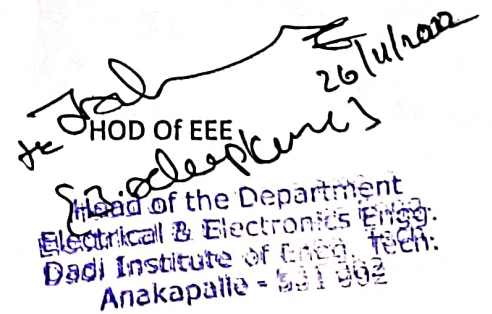 26/11/2022
HOD Of EEE
Head of the Department
Electrical & Electronics Engg.
Dadi Institute of Engg. Tech:
Anakapalle - 531 002